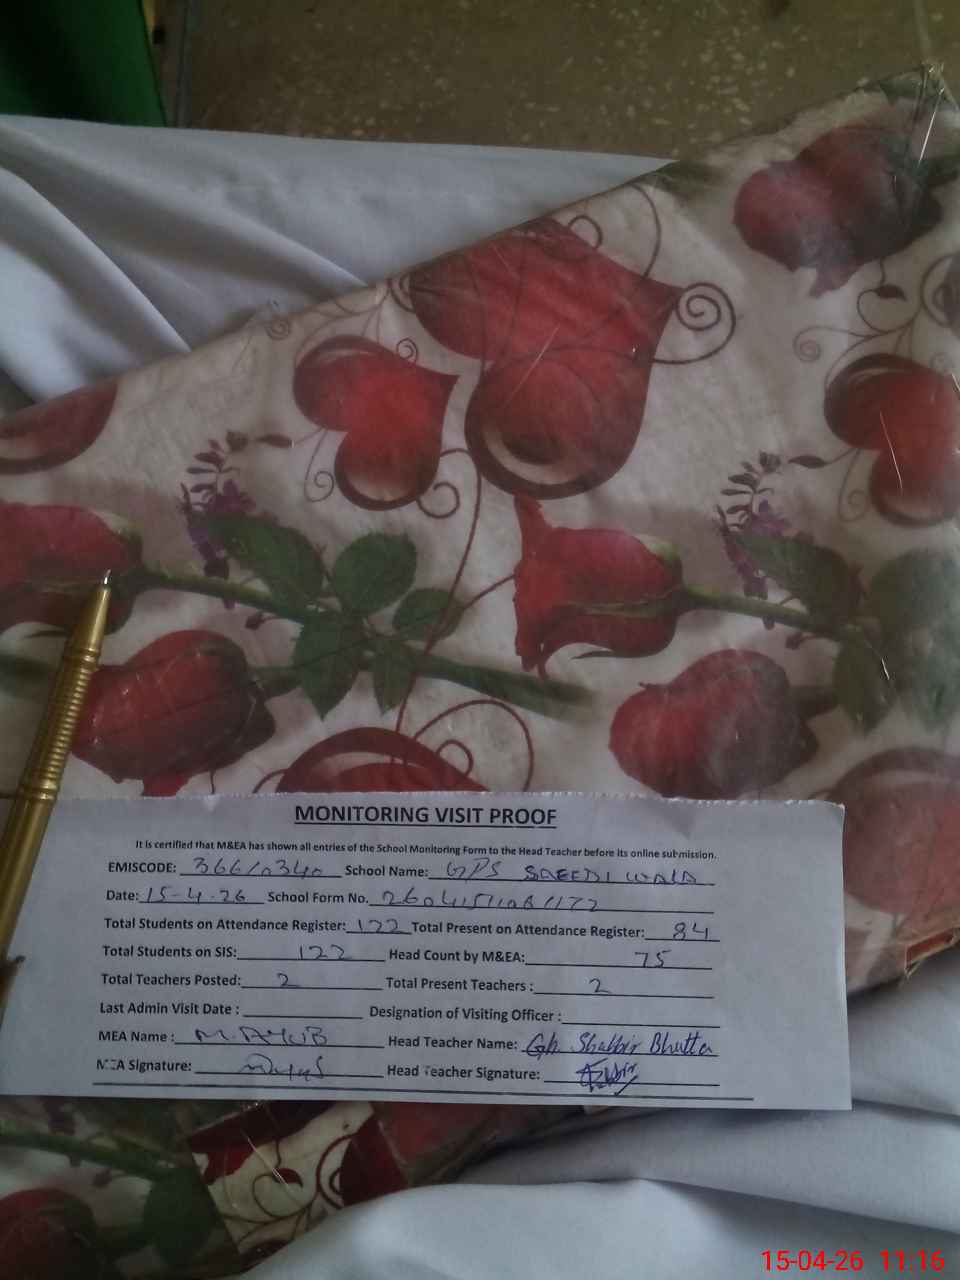 MONITORING VISIT PROOF
It is certified that M&EA has shown all entries of the School Monitoring Form to the Head Teacher before its online submission.
EMISCODE: 36610340 School Name: GPS SAEEDI WALA
Date: 15-4-26 School Form No.
Total Students on Attendance Register: 122 Total Present on Attendance Register: 84
Total Students on SIS: 122 Head Count by M&EA: 75
Total Teachers Posted: 2 Total Present Teachers : 2
Last Admin Visit Date : Designation of Visiting Officer :
MEA Name : M. AYUB Head Teacher Name: Gh. Shabbir Bhutta
MEA Signature: Head Teacher Signature:
15-04-26 11:16